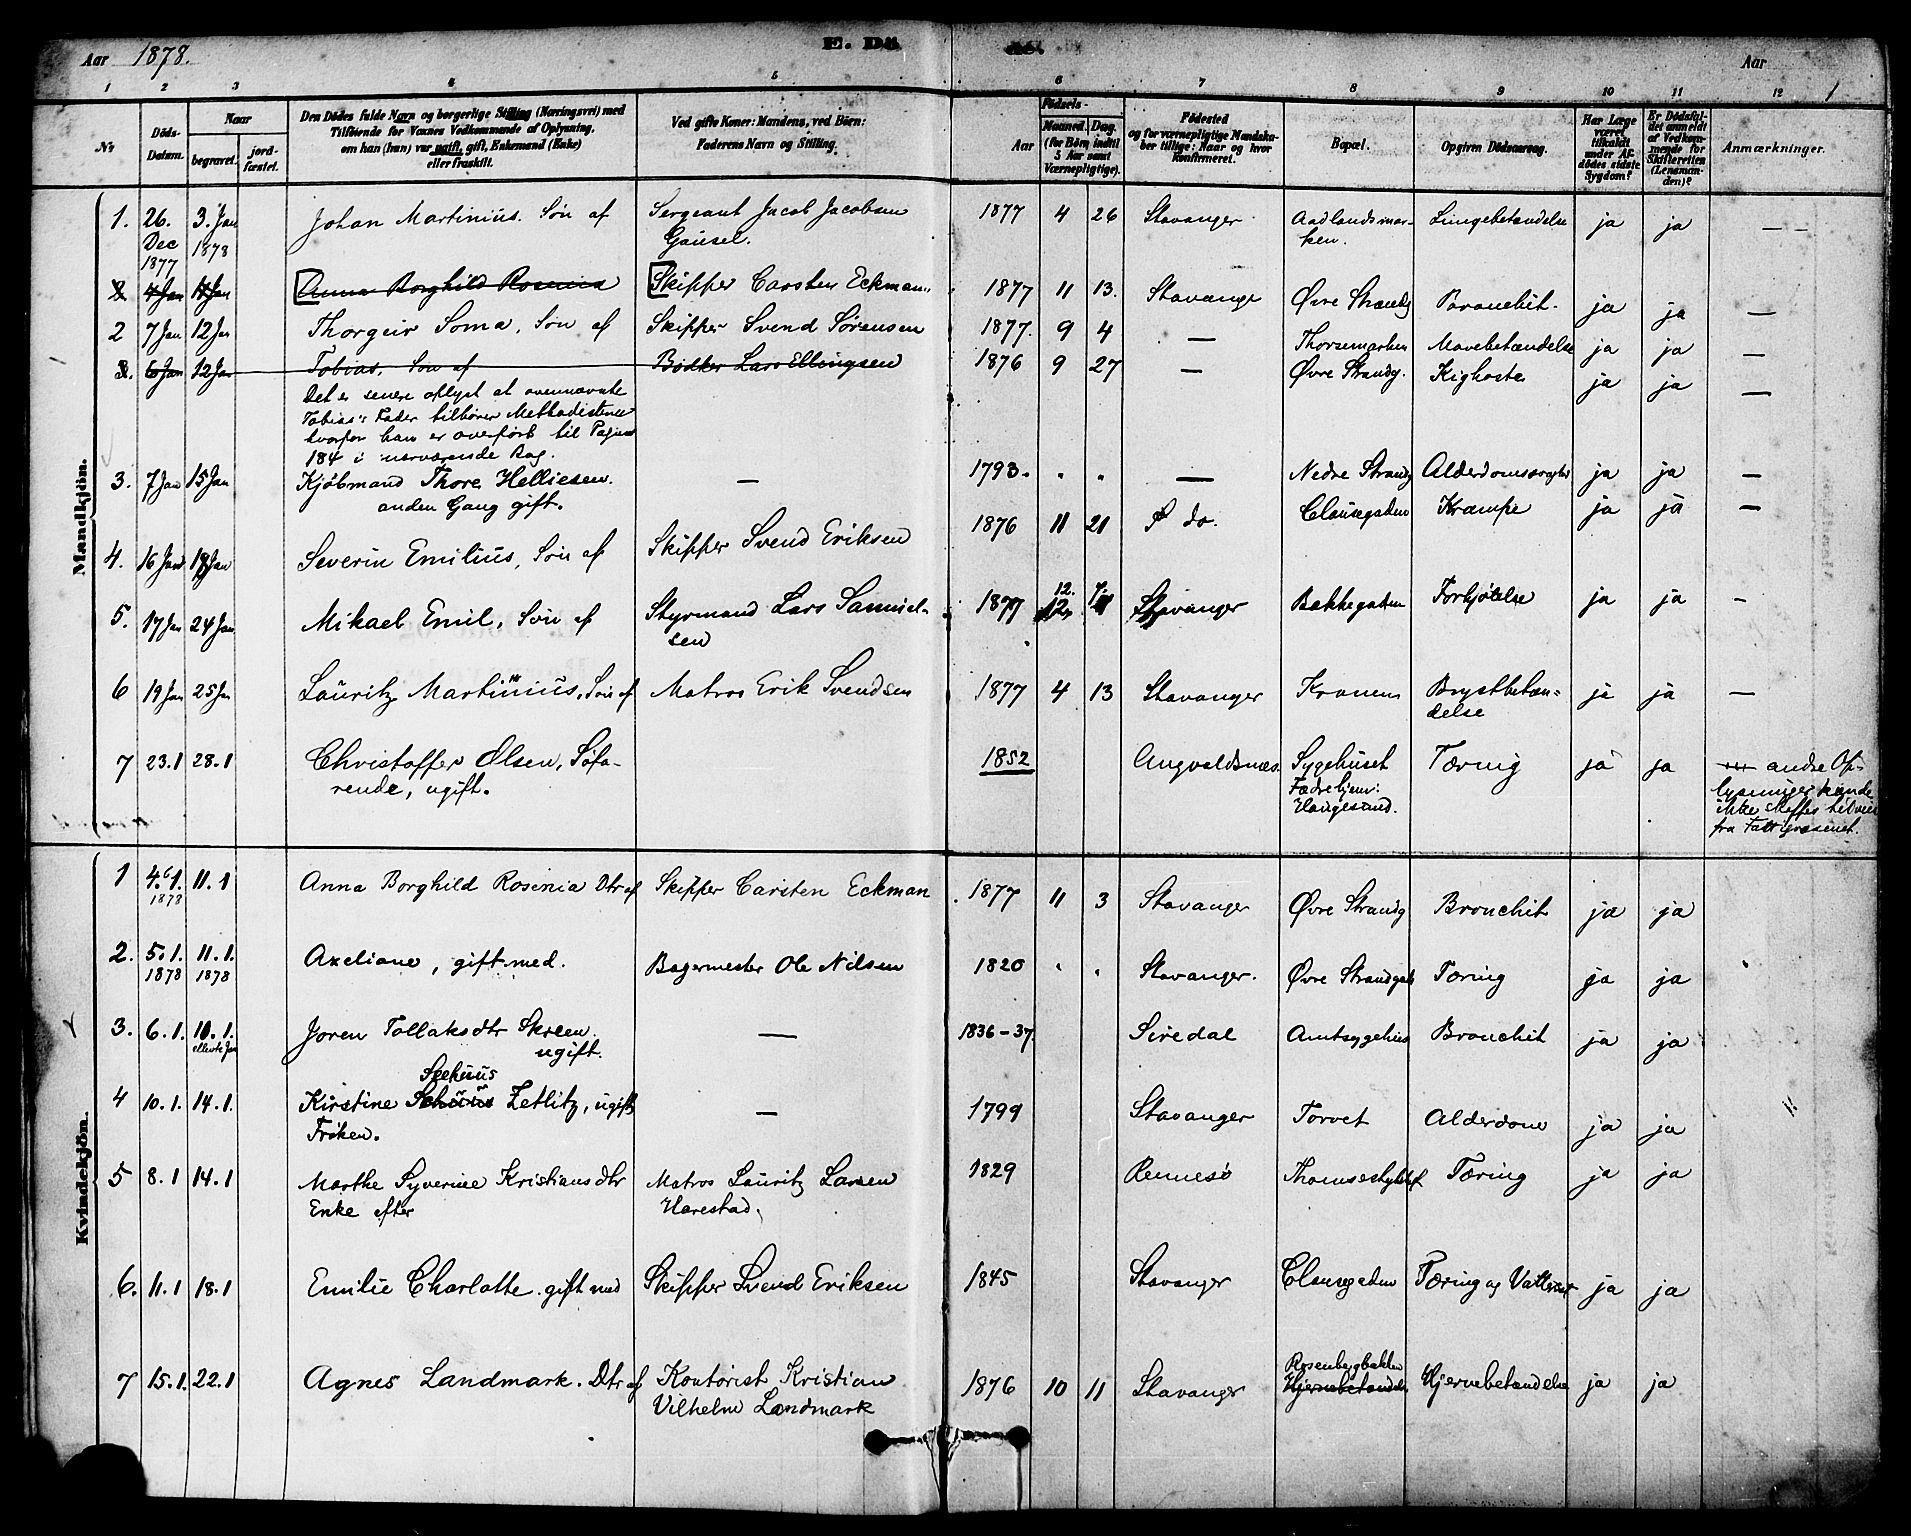 Aar 1878. E. Dö de. Aar
1 2 3 4 5 6 7 8 9 10 11 12 1
No Döds-Datum. Naar begravet. jordfæstet. Den Dödes fulde Navn og borgerlige Stilling (Næringsvei) med Tilföiende for Voxnes Vedkommende af Oplysning, om han (hun) var ugift, gift, Enkemand (Enke) eller fraskilt. Ved gifte Koner: Mandens, ved Börn: Faderens Navn og Stilling. Födsels- Aar Maaned. Dag. (for Börn indtil 5 Aar samt Værnepligtige). Födested og for værnepligtige Mandskaber tillige: Naar og hvor konfirmeret. Bopæl. Opgiven Dödsaarsag. Har Læge været tilkaldt under Afdödes sidste Sygdom? Er Dödsfaldet anmeldt af Vedkommende for Skifteretten (Lensmanden)? Anmærkninger.
Mandkjön.
1. 26. Dec 1877 3. Jan 1878 Johan Martinius. Sön af Sergeant Jacob Jacobsen Gausel. 1877 4 26 Stavanger Aadlandsmarken. Lungebetændelse ja ja — —
2. 4 Jan 11 Jan Anna Borghild Rosinia Skipper Carsten Eckman. 1877 11 13. Stavange Øvre Strandg Bronchit. ja ja —
2 7 Jan 12 Jan Thorgeir Soma, Sön af Skipper Svend Sørensen 1877. 9 4 — Thorsemarken Mavebetændelse ja ja —
3. 6 Jan 12 Jan Tobias, Sön af Bødker Lars Ellingsen 1876 9 27 — Øvre Strandg. Kighoste ja ja —
Det er senere oplyst at ovennævnte
Tobias's Fader tilhører Methodisterne
hvorfor han er overført til Pagina
184 i nærværende Bog.
3. 7 Jan 15 Jan Kjøbmand Thore Helliesen. anden Gang gift. — 1793. " " — Nedre Strandg Alderdomssvaghed ja ja —
4. 16 Jan 19 Jan Severin Emilius, Sön af Skipper Svend Eriksen 1876 11 21 do. Clausegaden Krampe ja ja —
5. 17 Jan 24 Jan Mikael Emil, Sön af Styrmand Lars Samuelsen 1877 12. Stavanger Bakkegaden Forkjølelse ja ja —
6 19 Jan 25 Jan Lauritz Martinius, Sön af Matros Erik Svendsen 1877 4 13 Stavanger Kronen Brystbetændelse ja ja —
7 23.1 28.1 Christoffer Olsen, Søfarende, ugift. 1852 Augvaldsnæs. Sygehuset Fædrehjem: Haugesund. Tæring ja ja andre Oplysninger kunde ikke skaffes tilveie fra Fattigvæsenet.
Kvindekjön.
1 4.1. 1878 11.1 Anna Borghild Rosinia Dtr af Skipper Carsten Eckman 1877 11 3 Stavanger Øvre Strandg Bronchit ja ja
2. 5.1. 1878 11.1. 1878 Axeliane, gift med. Bagermester Ole Nilsen 1820 " " Stavanger. Øvre Strandgade Tæring ja ja
3. 6.1. 11.1. ellevte Jan Joren Tollaksdtr Skreen. ugift. — 1836-37. Siredal Amtsygehus Bronchit ja ja
4 10.1. 14.1. Kirstine Seehuus Zetlitz, ugift Frøken. — 1799 Stavanger Torvet Alderdom ja ja
5 8.1 14.1 Marthe Syverine Kristiansdtr Enke efter Matros Lauritz Larsen Harestad. 1829 Rennesø Tæring ja ja
6. 11.1 18.1 Emilie Charlotte. gift med Skipper Svend Eriksen 1845 Stavanger Clausegaden Tæring og Vattersot ja ja
7 15.1. 22.1 Agnes Landmark. Dtr af Kontorist Kristian Vilhelm Landmark 1876 10 11 Stavanger Rosenbergbakken Hjernebetændelse Hjernebetændelse ja ja